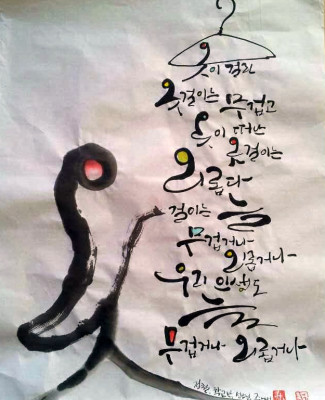 옷이 걸린
옷걸이는 무겁고
옷이 떠난
옷걸이는
외롭다
걸이는 늘
무겁거나
외롭거나
우리 인생도
늘
무겁거나 외롭거나